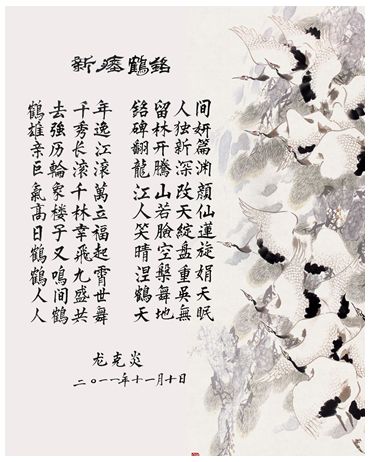 新瘗鶴銘
鶴去千年 銘留人间
雄強秀逸 碑林独妍
亲历长江 翻开新篇
巨轮滚滚 龍腾深渊
氣象千萬 江山改颜
高楼林立 人若天仙
日子幸福 笑臉绽莲
鶴又飛起 晴空盘旋
鶴鳴九霄 涅槃重娟
人间盛世 鶴舞吴天
人鶴共舞 天地無眠
龙克炎
二〇一一年十一月十日